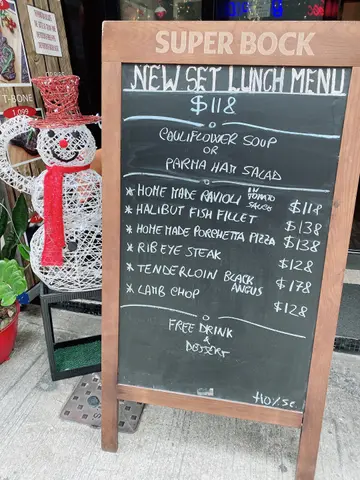 SUPER BOCK
NEW SET LUNCH MENU
$118
COULIFLOWER SOUP
OR
PARMA HAM SALAD
* HOME MADE RAVIOLI IN TOMATO SAUCE $118
* HALIBUT FISH FILLET $138
* HOME MADE PORCHETTA PIZZA $138
* RIB EYE STEAK $128
* TENDERLOIN BLACK ANGUS $178
* LAMB CHOP $128
FREE DRINK
&
DESSERT
T-BONE
1,099